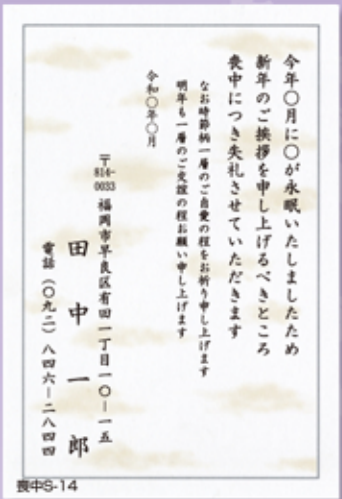 今年〇月に〇が永眠いたしましたため
新年のご挨拶を申し上げるべきところ
喪中につき失礼させていただきます
なお時節柄一層のご自愛の程をお祈り申し上げます
明年も一層のご交誼の程お願い申し上げます
令和〇年〇月
〒814-0033 福岡市早良区有田一丁目一〇－一五
田中一郎
電話（〇九二）八四六－二八四四
喪中S-14